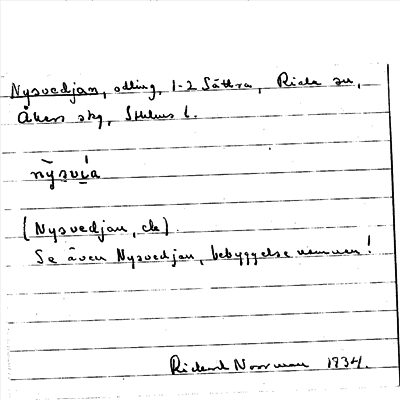 Nysvedjan, odling, 1-2 Sättra, Riala sn,
Åkers skg, Sthlms l.
nỳsví̲a
(Nysvedjan, ck).
Se även Nysvedjan, bebyggelsenamnen!
Rickard Norrman 1934.